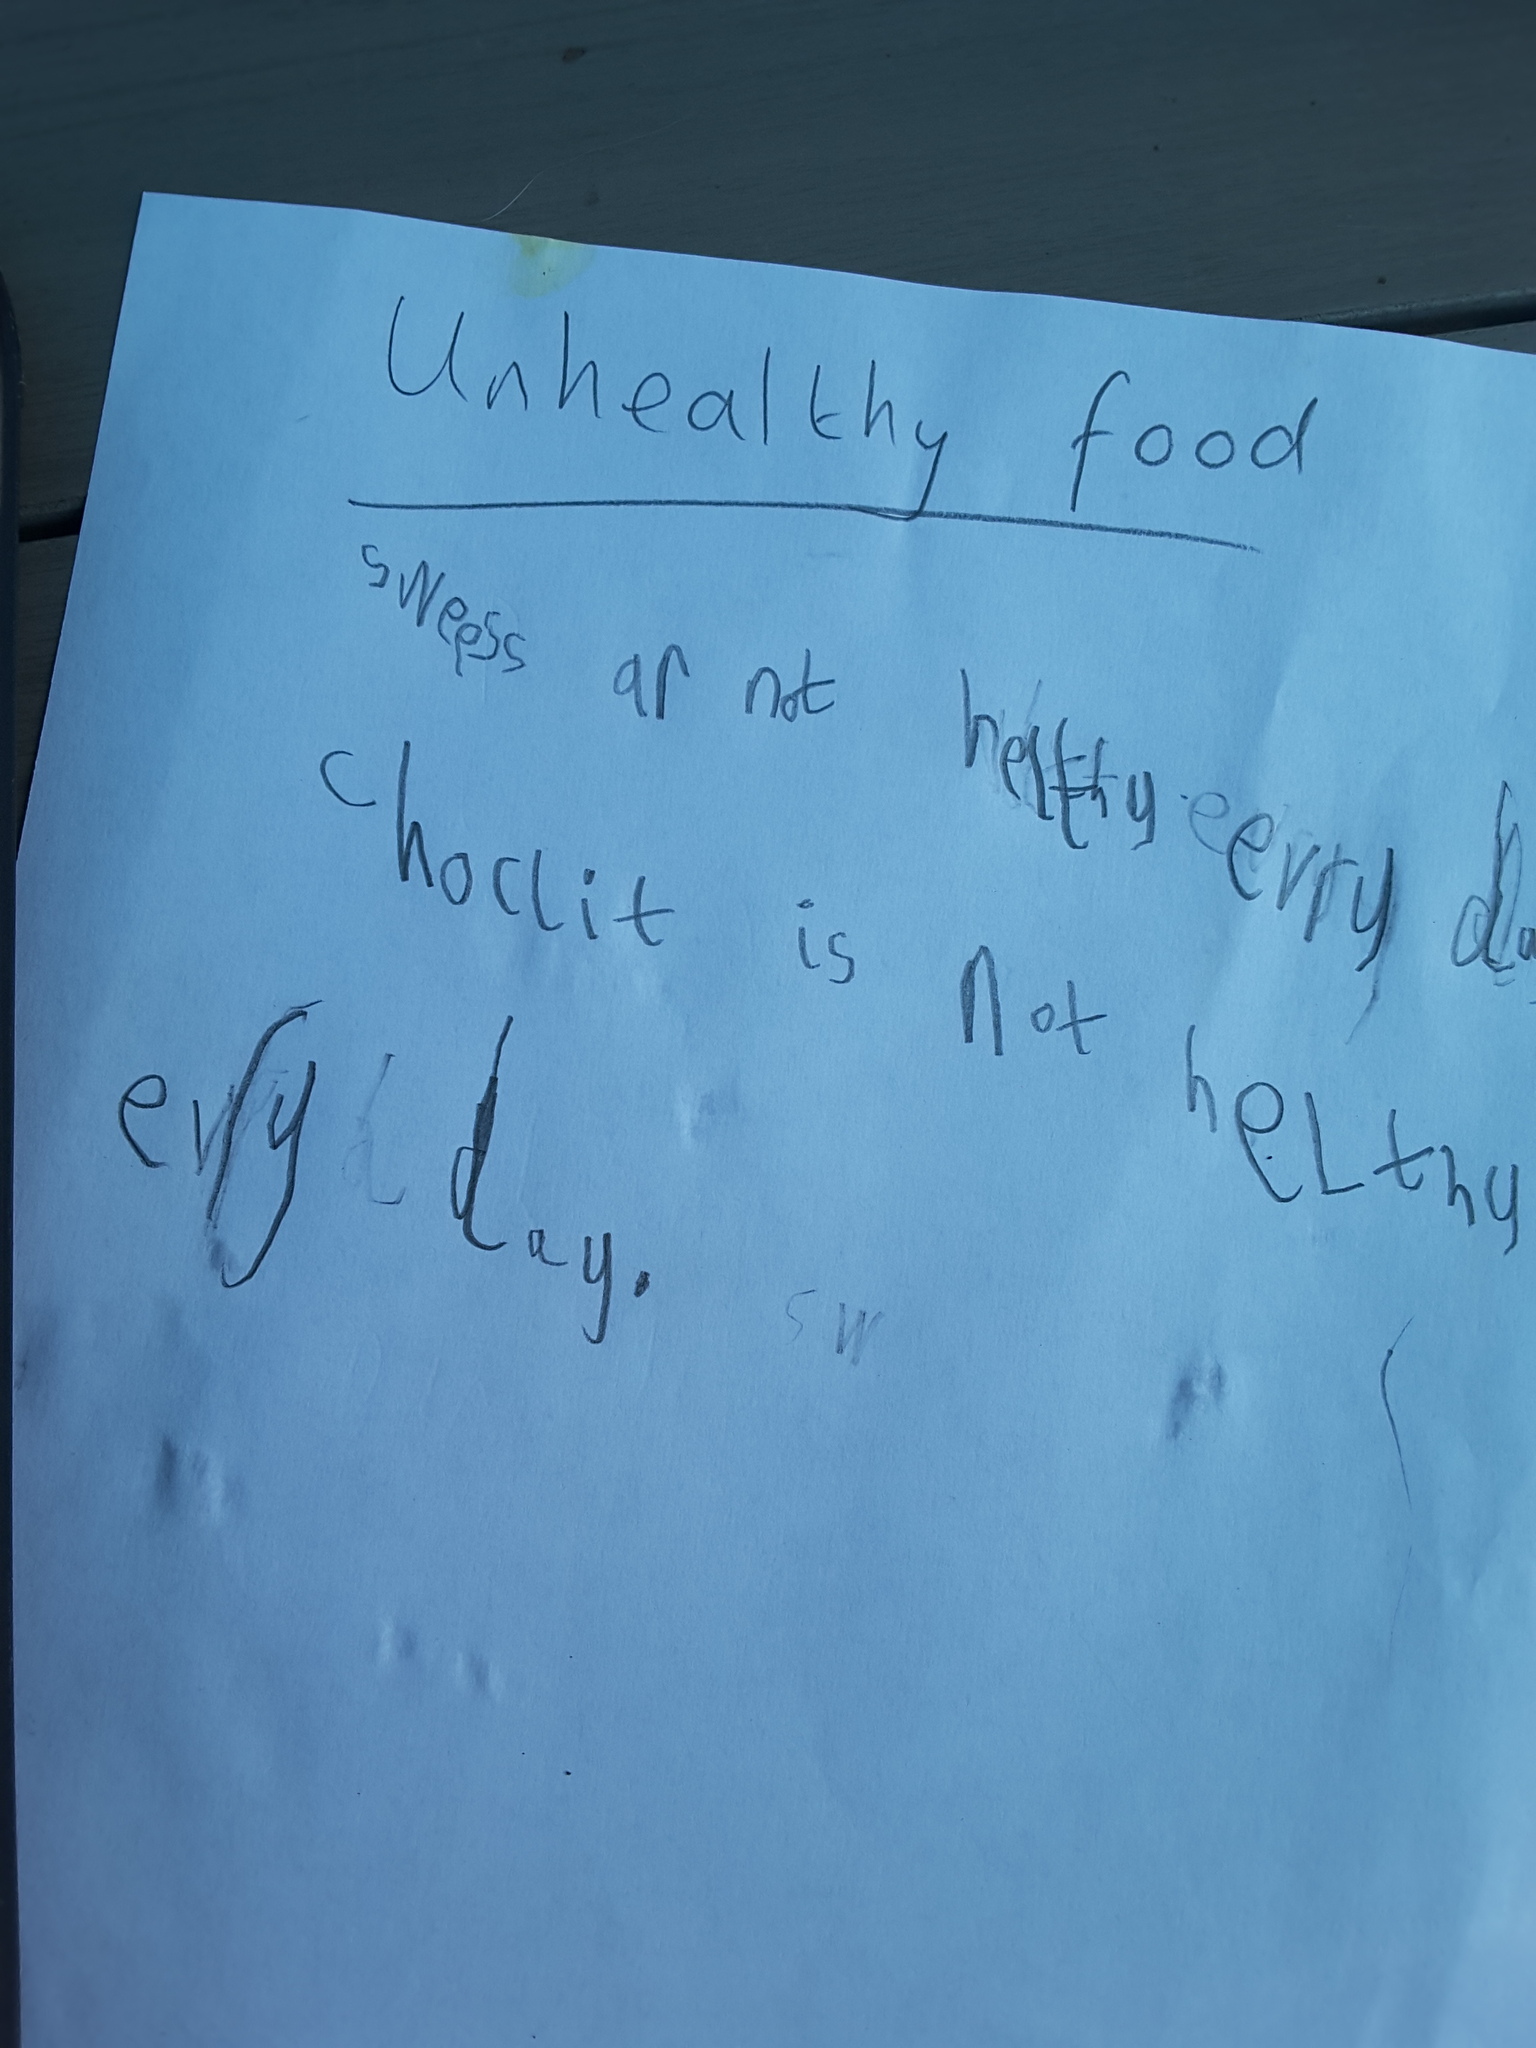 Unhealthy food
sweess ar not helthy evry da
choclit is not helthy
evry day. sw